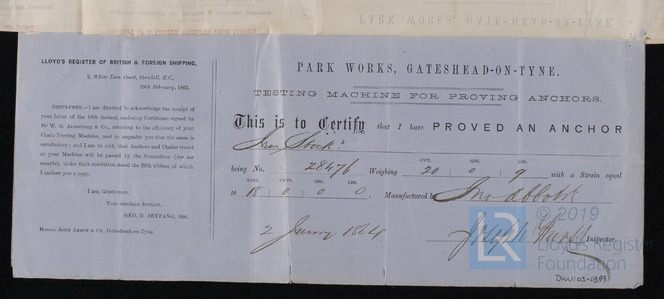 LLOYD'S REGISTER OF BRITISH & FOREIGN SHIPPING,
2, White Lion Court, Cornhill, E.C.,
19th February, 1863.
GENTLEMEN,—I am directed to acknowledge the receipt of
your letter of the 18th instant, enclosing Certificate signed by
Sir W. G. Armstrong & Co., attesting to the efficiency of your
Chain-Proving Machine, and to acquaint you that the same is
satisfactory; and I am to add, that Anchors and Chains tested
at your Machine will be passed by the Committee (for six
months), under their resolution dated the 29th ultimo, of which
I enclose you a copy.
I am, Gentlemen,
Your obedient Servant,
GEO. B. SEYFANG, SEC.
Messrs. JOHN ABBOT & Co., Gateshead-on-Tyne.
PARK WORKS, GATESHEAD-ON-TYNE.
TESTING MACHINE FOR PROVING ANCHORS.
This is to Certify that I have PROVED AN ANCHOR
Iron Stock
being No. 28476 Weighing CWT. 20 QRS. 0 LBS. 9 with a Strain equal
to TONS. 18 CWT. 0 QRS. 0 LBS. 0 Manufactured by Jno Abbott
2 January 1864 Joseph Inspector.
DUN103-0399
LR
© 2019
Lloyd's Register
Foundation